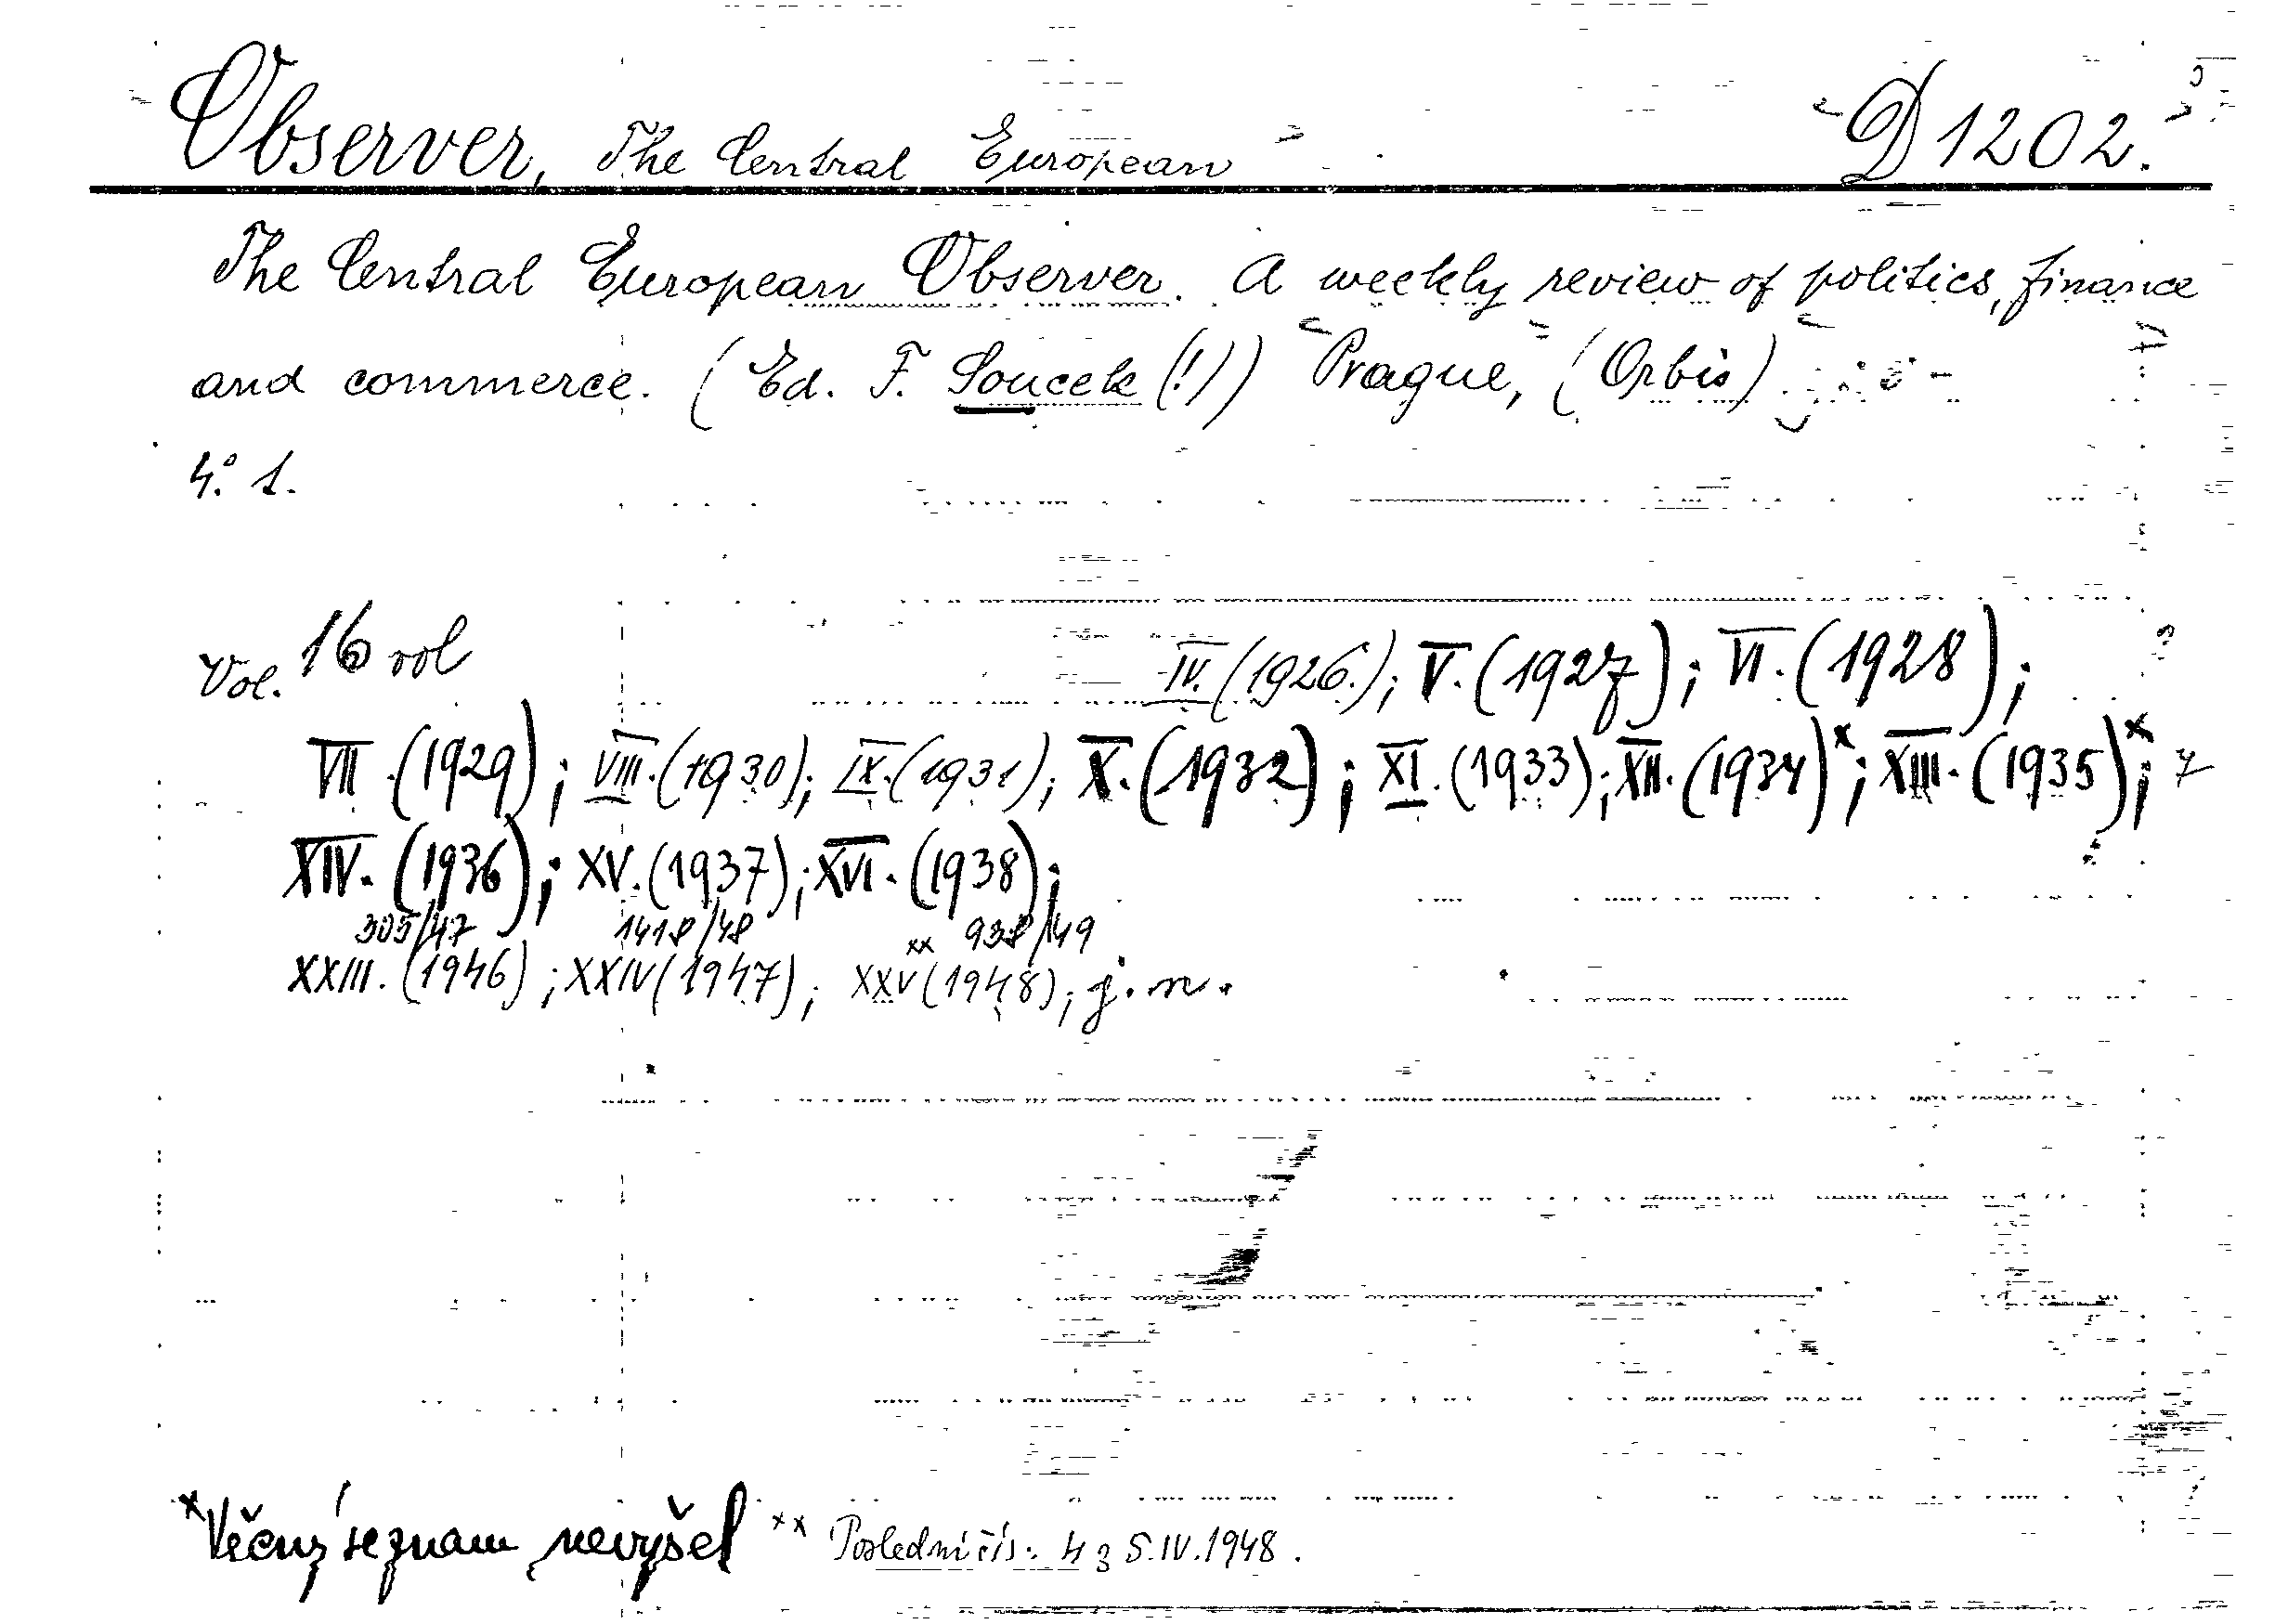 Observer, The Central European D 1202.
The Central European Observer. A weekly review of politics, finance
and commerce. (Ed. F. Soucek (!)) Prague, (Orbis)
4.° 1.
Vol. 16 vol IV. (1926.); V. (1927); VI. (1928);
VII. (1929); VIII. (1930); IX. (1931); X. (1932); XI. (1933); XII. (1934)x; XIII. (1935)x;
XIV. (1936); XV. (1937); XVI. (1938);
305/47 1418/48 938/49
XXIII. (1946); XXIV (1947); XXV xx (1948); j. n.
x Věcný seznam nevyšel xx Poslední čís. 4 z 5.IV.1948.